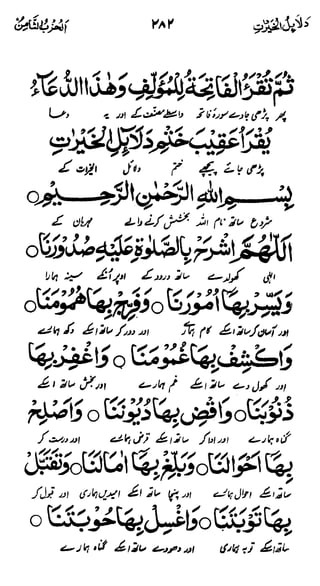 دلائل الخیرات ٢٨٢ الحزب الثامن
ثُمَّ تُقْرَأُ الْفَاتِحَةُ لِلْمُؤَلِّفِ وَهٰذَا الدُّعَاءُ
پھر پڑھی جاوے سورۂ فاتحہ واسطے مصنف کے اور یہ دعا
يُقْرَأُ عَقِيْبَ خَتْمِ دَلَائِلِ الْخَيْرَاتِ
پڑھی جائے پیچھے ختم دلائل الخیرات کے
بِسْمِ اللهِ الرَّحْمٰنِ الرَّحِيْمِ ○
شروع ساتھ نام اللہ بخشش کرنے والے مہربان کے
اَللّٰهُمَّ اشْرَحْ بِالصَّلٰوةِ عَلَيْهِ صُدُوْرَنَا ○
الٰہی کھولدے ساتھ درود کے اوپر انکے سینہ ہمارا
وَيَسِّرْ بِهَا اُمُوْرَنَا ○ وَفَرِّجْ بِهَا هُمُوْمَنَا ○
اور آسان کر ساتھ اسکے کام ہمارے اور دور کر ساتھ اسکے دکھ ہمارے
وَاكْشِفْ بِهَا غُمُوْمَنَا ○ وَاغْفِرْ بِهَا
اور کھول دے ساتھ اسکے غم ہمارے اور بخش ساتھ اسکے
ذُنُوْبَنَا ○ وَاقْضِ بِهَا دُيُوْنَنَا ○ وَاَصْلِحْ
گناہ ہمارے اور ادا کر ساتھ اسکے قرض ہمارے اور درست کر
بِهَا اَحْوَالَنَا ○ وَبَلِّغْ بِهَا اٰمَالَنَا ○ وَتَقَبَّلْ
ساتھ اسکے احوال ہمارے اور پہنچا ساتھ اسکے امیدیں ہماری اور قبول کر
بِهَا تَوْبَتَنَا ○ وَاغْسِلْ بِهَا حَوْبَتَنَا ○
ساتھ اسکے توبہ ہماری اور دھودے ساتھ اسکے گناہ ہمارے